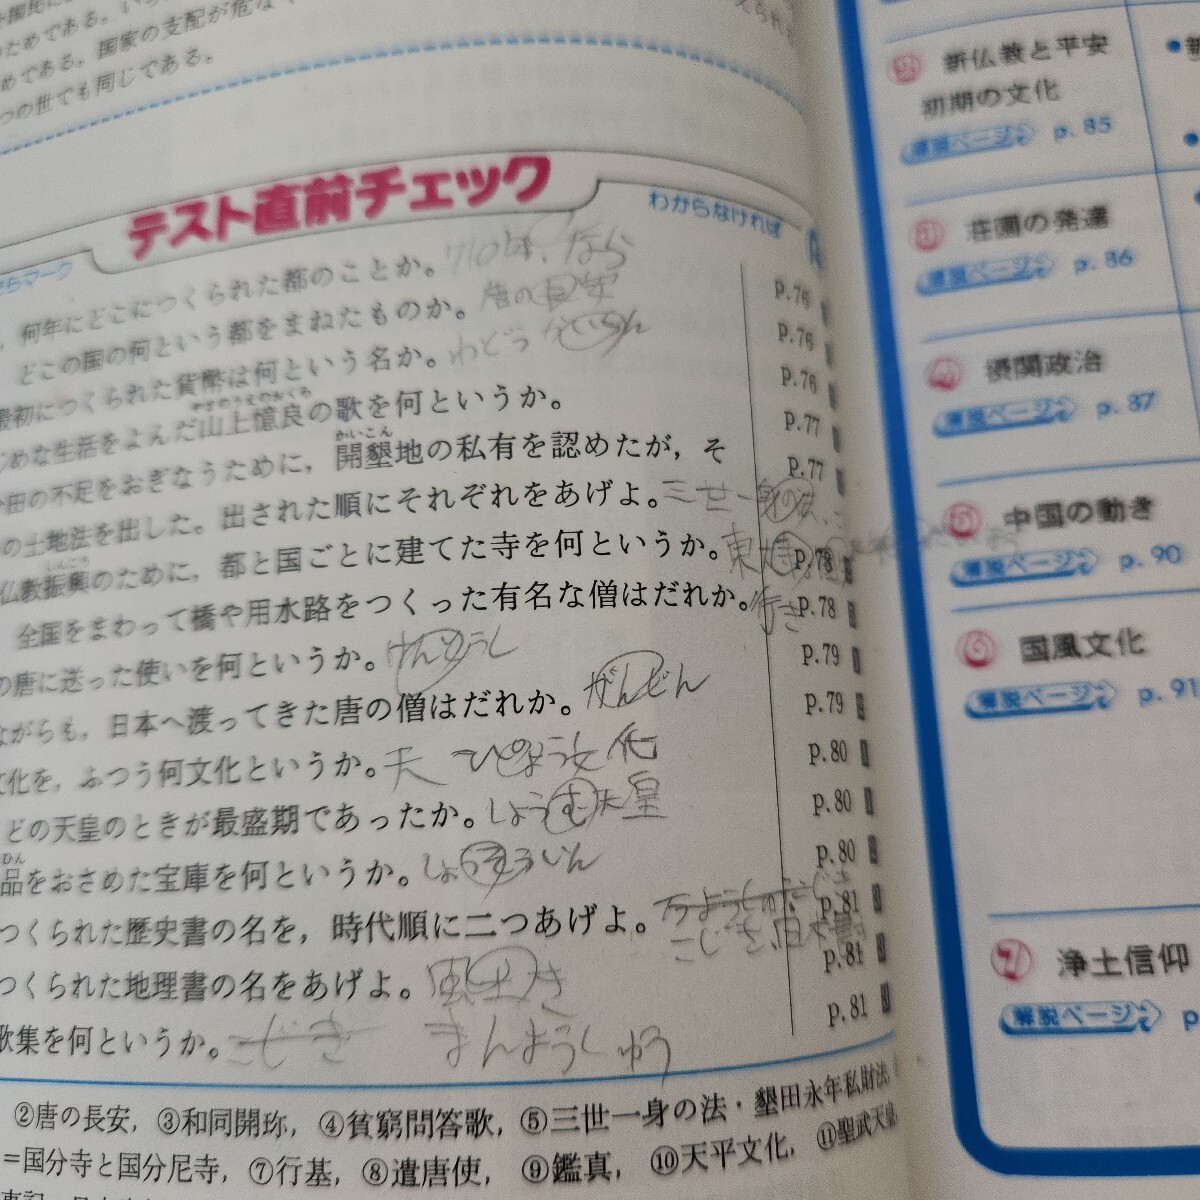 めである。国家の支配が危な
つの世でも同じである。
テスト直前チェック
わからなければ
何年にどこにつくられた都のことか。710年、なら
どこの国の何という都をまねたものか。唐の
最初につくられた貨幣は何という名か。わどう
じめな生活をよんだ山上憶良の歌を何というか。
田の不足をおぎなうために，開墾地の私有を認めたが，そ
の土地法を出した。出された順にそれぞれをあげよ。三世一身の法、
仏教振興のために，都と国ごとに建てた寺を何というか。東
全国をまわって橋や用水路をつくった有名な僧はだれか。行き
の唐に送った使いを何というか。けんとうし
ながらも，日本へ渡ってきた唐の僧はだれか。がんじん
文化を，ふつう何文化というか。天 ぴょう文化
どの天皇のときが最盛期であったか。しょうむ天皇
品をおさめた宝庫を何というか。しょうそういん
つくられた歴史書の名を，時代順に二つあげよ。
こじき、日本書
つくられた地理書の名をあげよ。風土き
歌集を何というか。こじき まんようしゅう
p.76
p.76
p.76
p.77
p.77
p.78
p.78
p.79
p.79
p.80
p.80
p.80
p.81
p.81
p.81
②唐の長安，③和同開珎，④貧窮問答歌，⑤三世一身の法・墾田永年私財法，
＝国分寺と国分尼寺，⑦行基，⑧遣唐使，⑨鑑真，⑩天平文化，⑪聖武天皇
新仏教と平安
初期の文化
解説ページ p.85
荘園の発達
解説ページ p.86
④ 摂関政治
解説ページ p.87
⑤ 中国の動き
解説ページ p.90
⑥ 国風文化
解説ページ p.91
⑦ 浄土信仰
解説ページ p